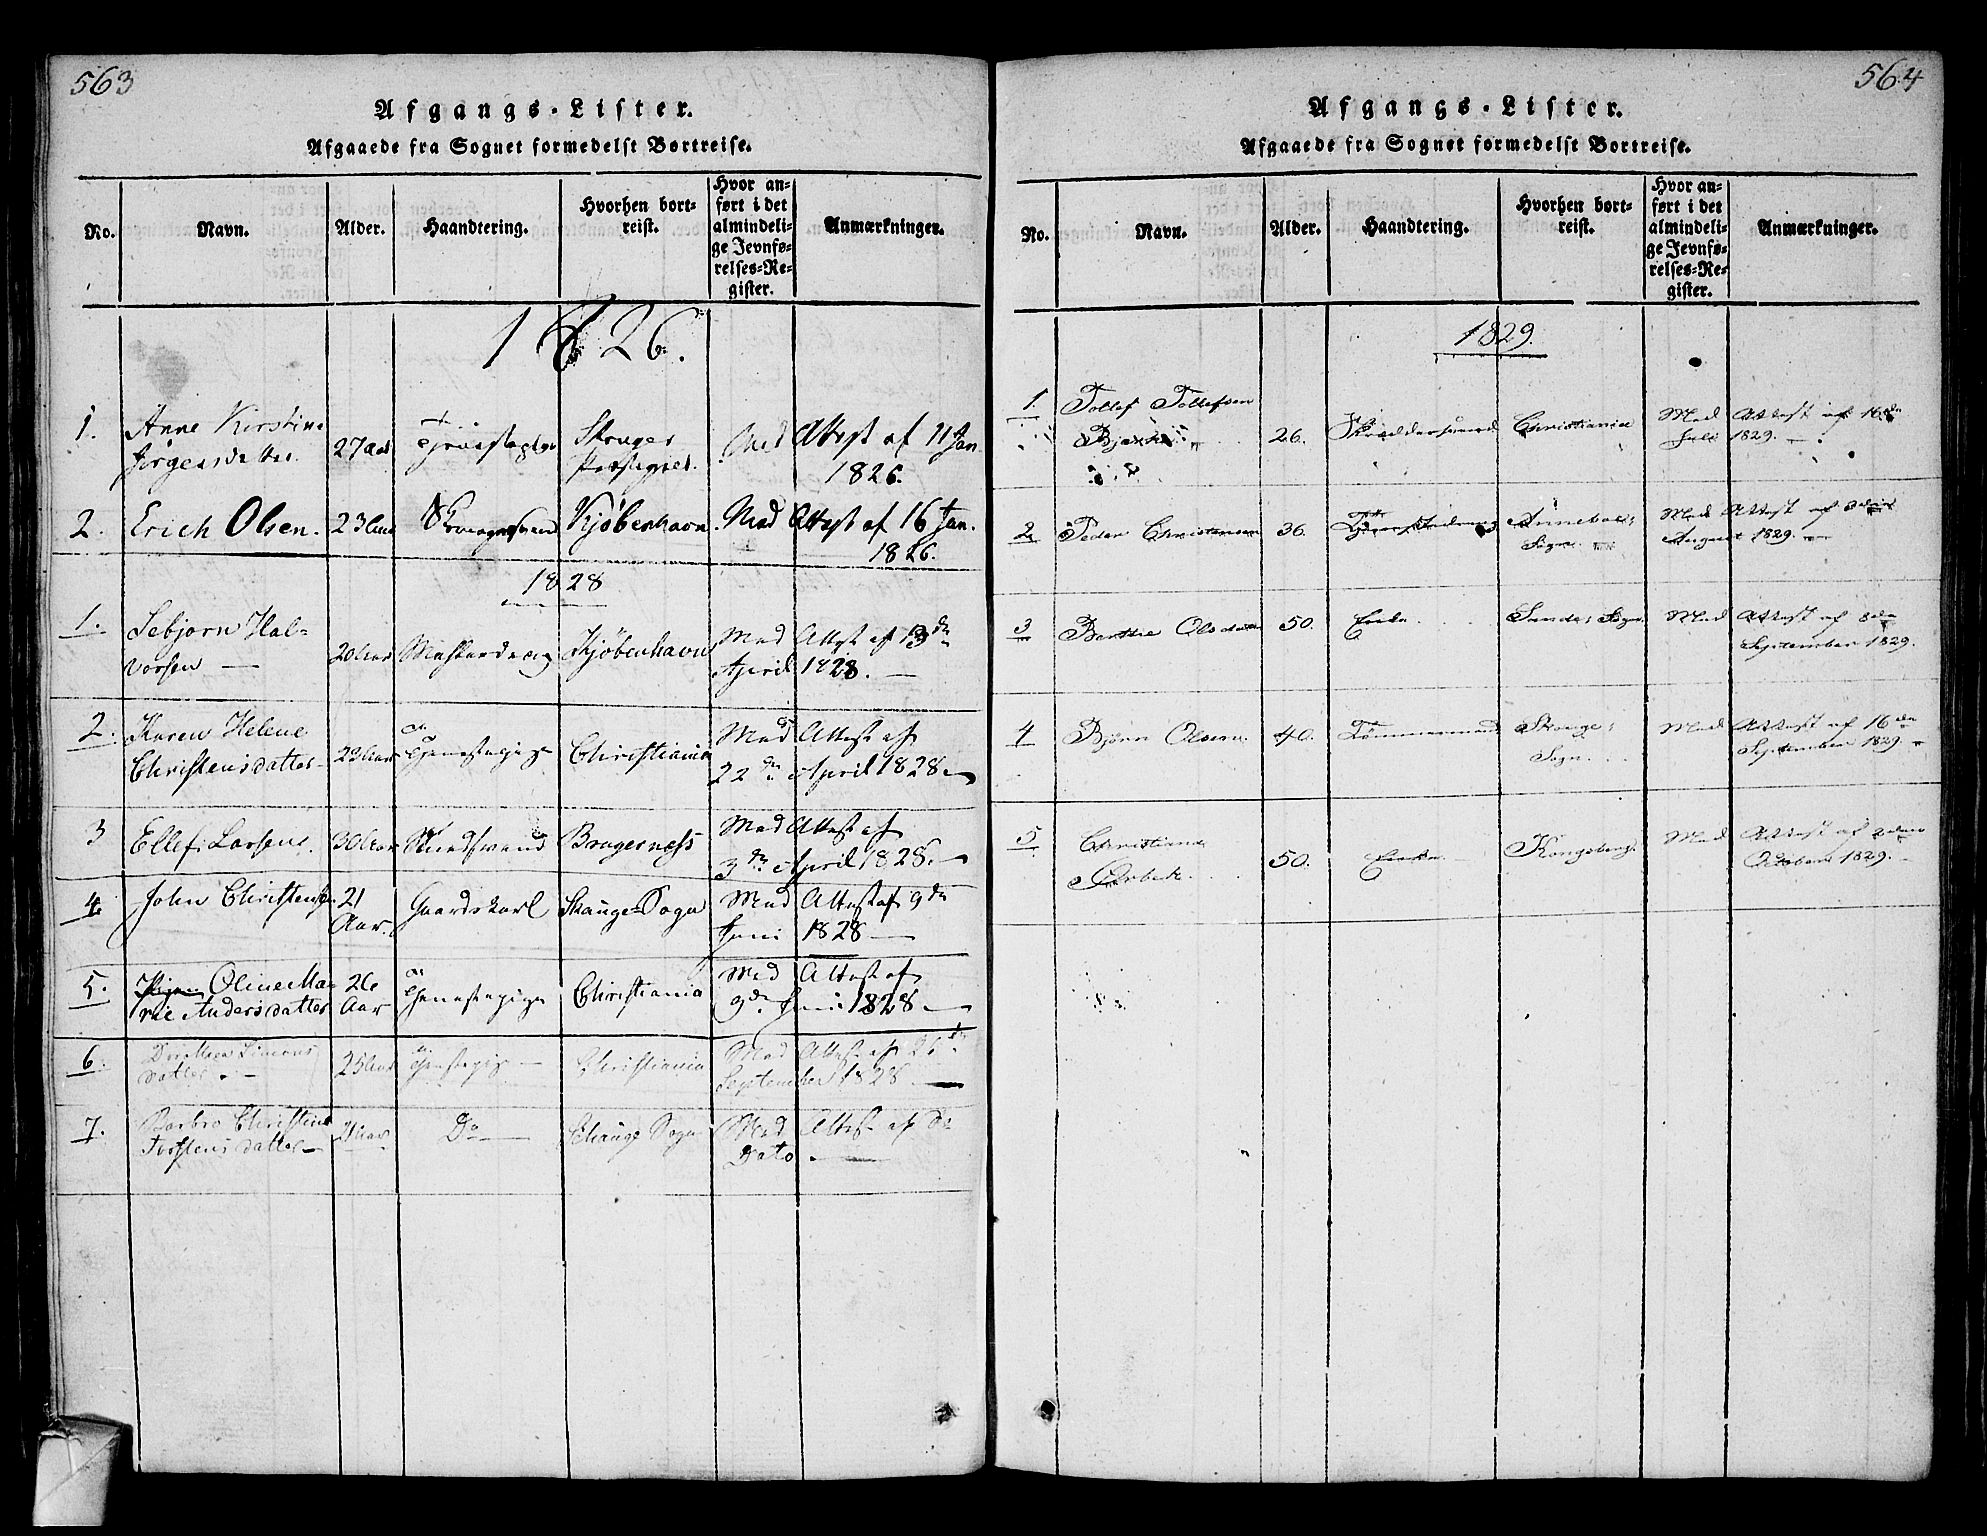 563
Afgangs-Lister.
Afgaaede fra Sognet formedelst Bortreise.
No. Navn. Alder. Haandtering. Hvorhen bortreist. Hvor anført i det almindelige Jevnførelses-Register. Anmærkninger.
1826.
1. Anne Kirstine Jørgensdatter 27 Aar Skouger Præstegield. Med Attest af 11 Jan. 1826.
2. Erich Olsen. 23 Aar Kjøbenhavn. Med Attest af 16 Jan. 1826.
1828
1. Sebjørn Halvorsen — 20 Aar Kjøbenhavn Med Attest af 13de April 1828. —
2. Karen Helene Christensdatter 23 Aar Tjenestepige Christiania Med Attest af 22de April 1828 —
3 Ellef Larsen. 30 Aar Bragernes Med Attest af 3de April 1828. —
4 John Christensen 21 Aar. Gaardskarl Skauger Sogn Med Attest af 9de Juni 1828 —
5. Oline Marie Andersdatter 26 Aar Tjenestepige Christiania Med Attest af 9de Juni 1828 —
6. Dorthea Simonsdatter. — 25 Aar Tjenestepige — Christiania Med Attest af 26de September 1828 —
7. Barbro Christine Torstensdatter — Aar Do — Skauge Sogn Med Attest af Do Dato. —
564
Afgangs-Lister.
Afgaaede fra Sognet formedelst Bortreise.
No. Navn. Alder. Haandtering. Hvorhen bortreist. Hvor anført i det almindelige Jevnførelses-Register. Anmærkninger.
1829.
1. Tollef Tollefsen 26. Skræddersvend Christiania Med Attest af 16de Juli 1829. —
2 Peder Christensen 36. Sogn Med Attest af August 1829. —
3 Berthe Olsdatter 50. Enke. Sande Sogn Med Attest af 8de September 1829.
4 Bjørn Olsen. 40. Tømmermand Skouge Sogn. Med Attest af 16de September 1829. —
5 Christiane 50. Enke. Kongsberg. Med Attest af October 1829. —